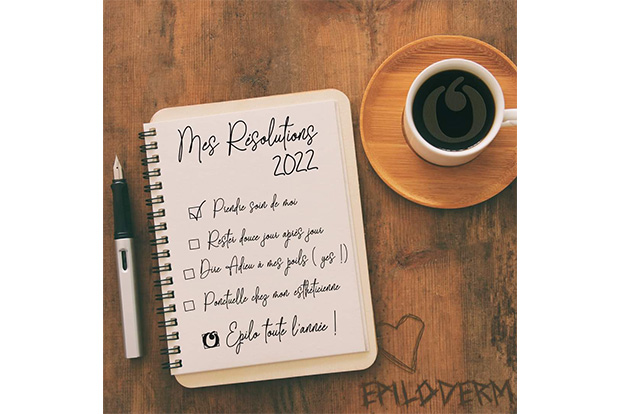 Mes Résolutions
2022
Prendre soin de moi
Rester douce jour après jour
Dire Adieu à mes poils ( yes !)
Ponctuelle chez mon esthéticienne
Epilo toute l'année !
EPILODERM